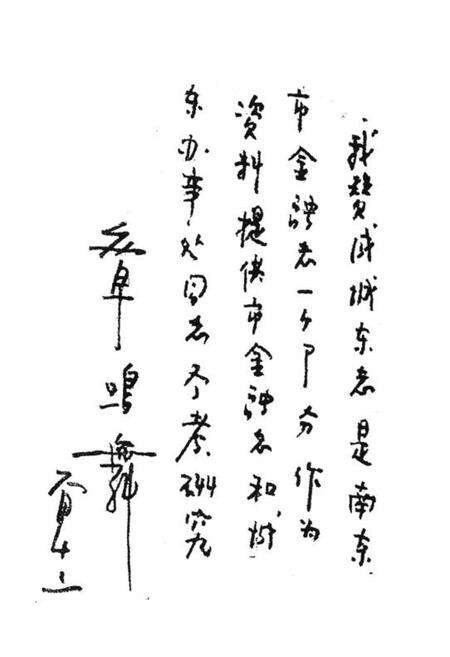 我赞成城东志是南京
市金融志一个部分作为
资料提供市金融志和城
东办事处同志参考研究
鸣